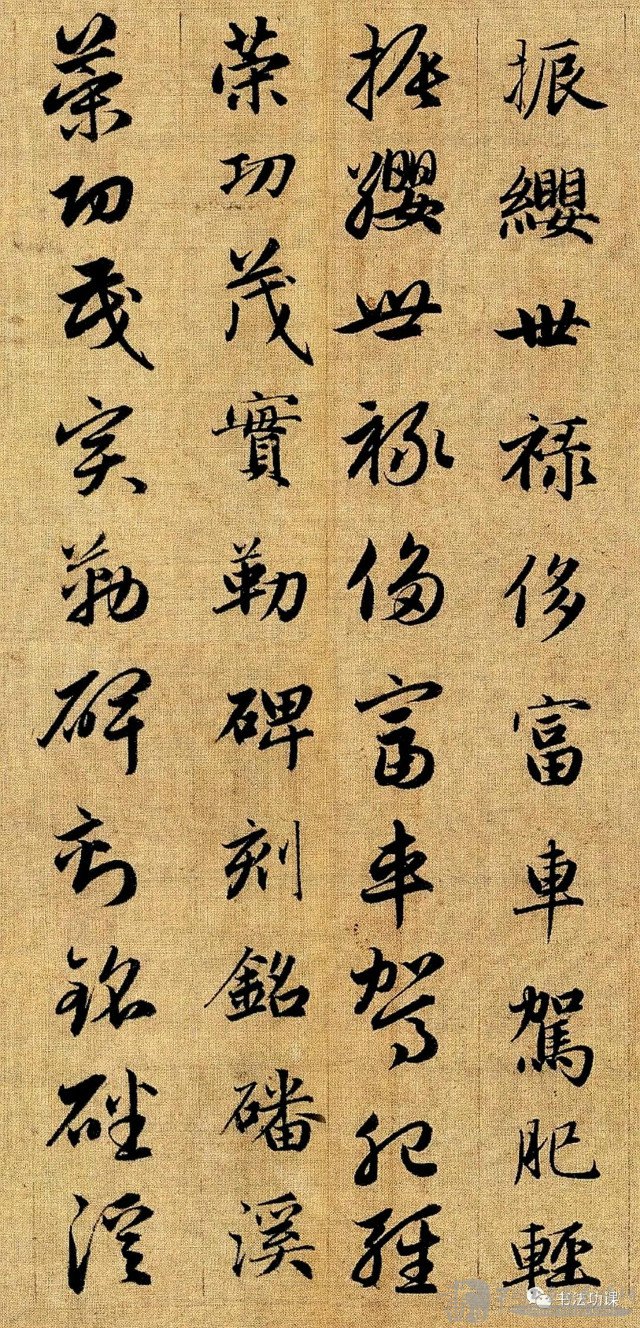 振纓世祿侈富車駕肥輕
振纓世祿侈富車駕肥輕
策功茂實勒碑刻銘磻溪
策功茂實勒碑刻銘磻溪
书法功课